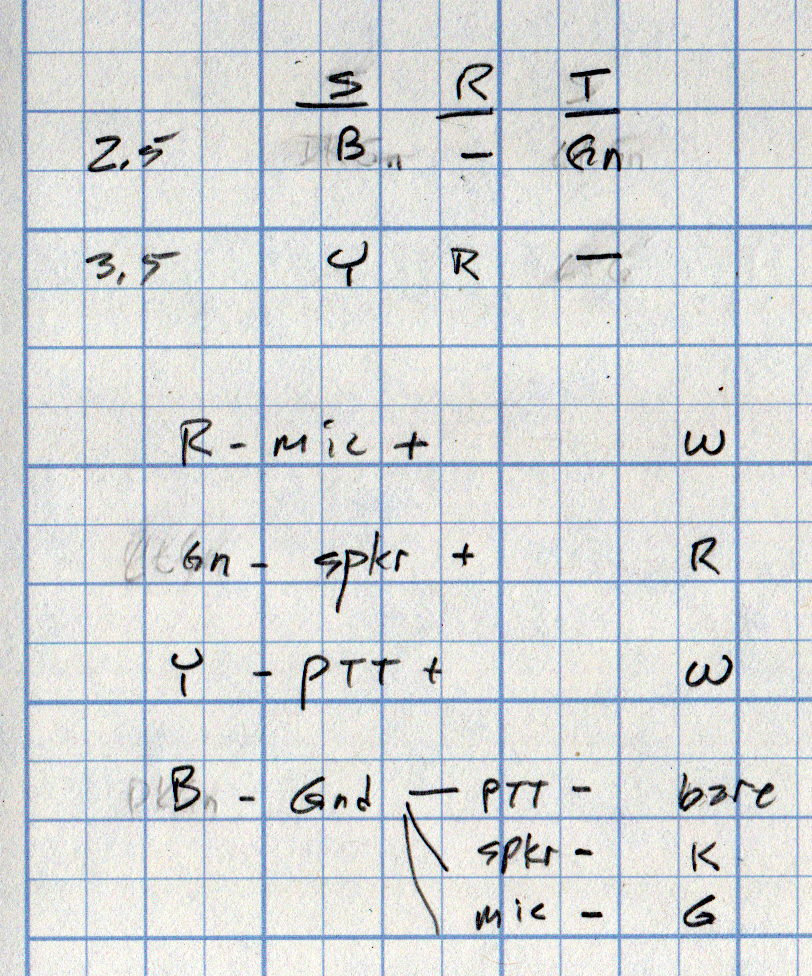 S R T
2.5 B - Gn
3.5 Y R -
R - mic + W
Gn - spkr + R
Y - PTT + W
B - Gnd - PTT - bare
spkr - K
mic - G